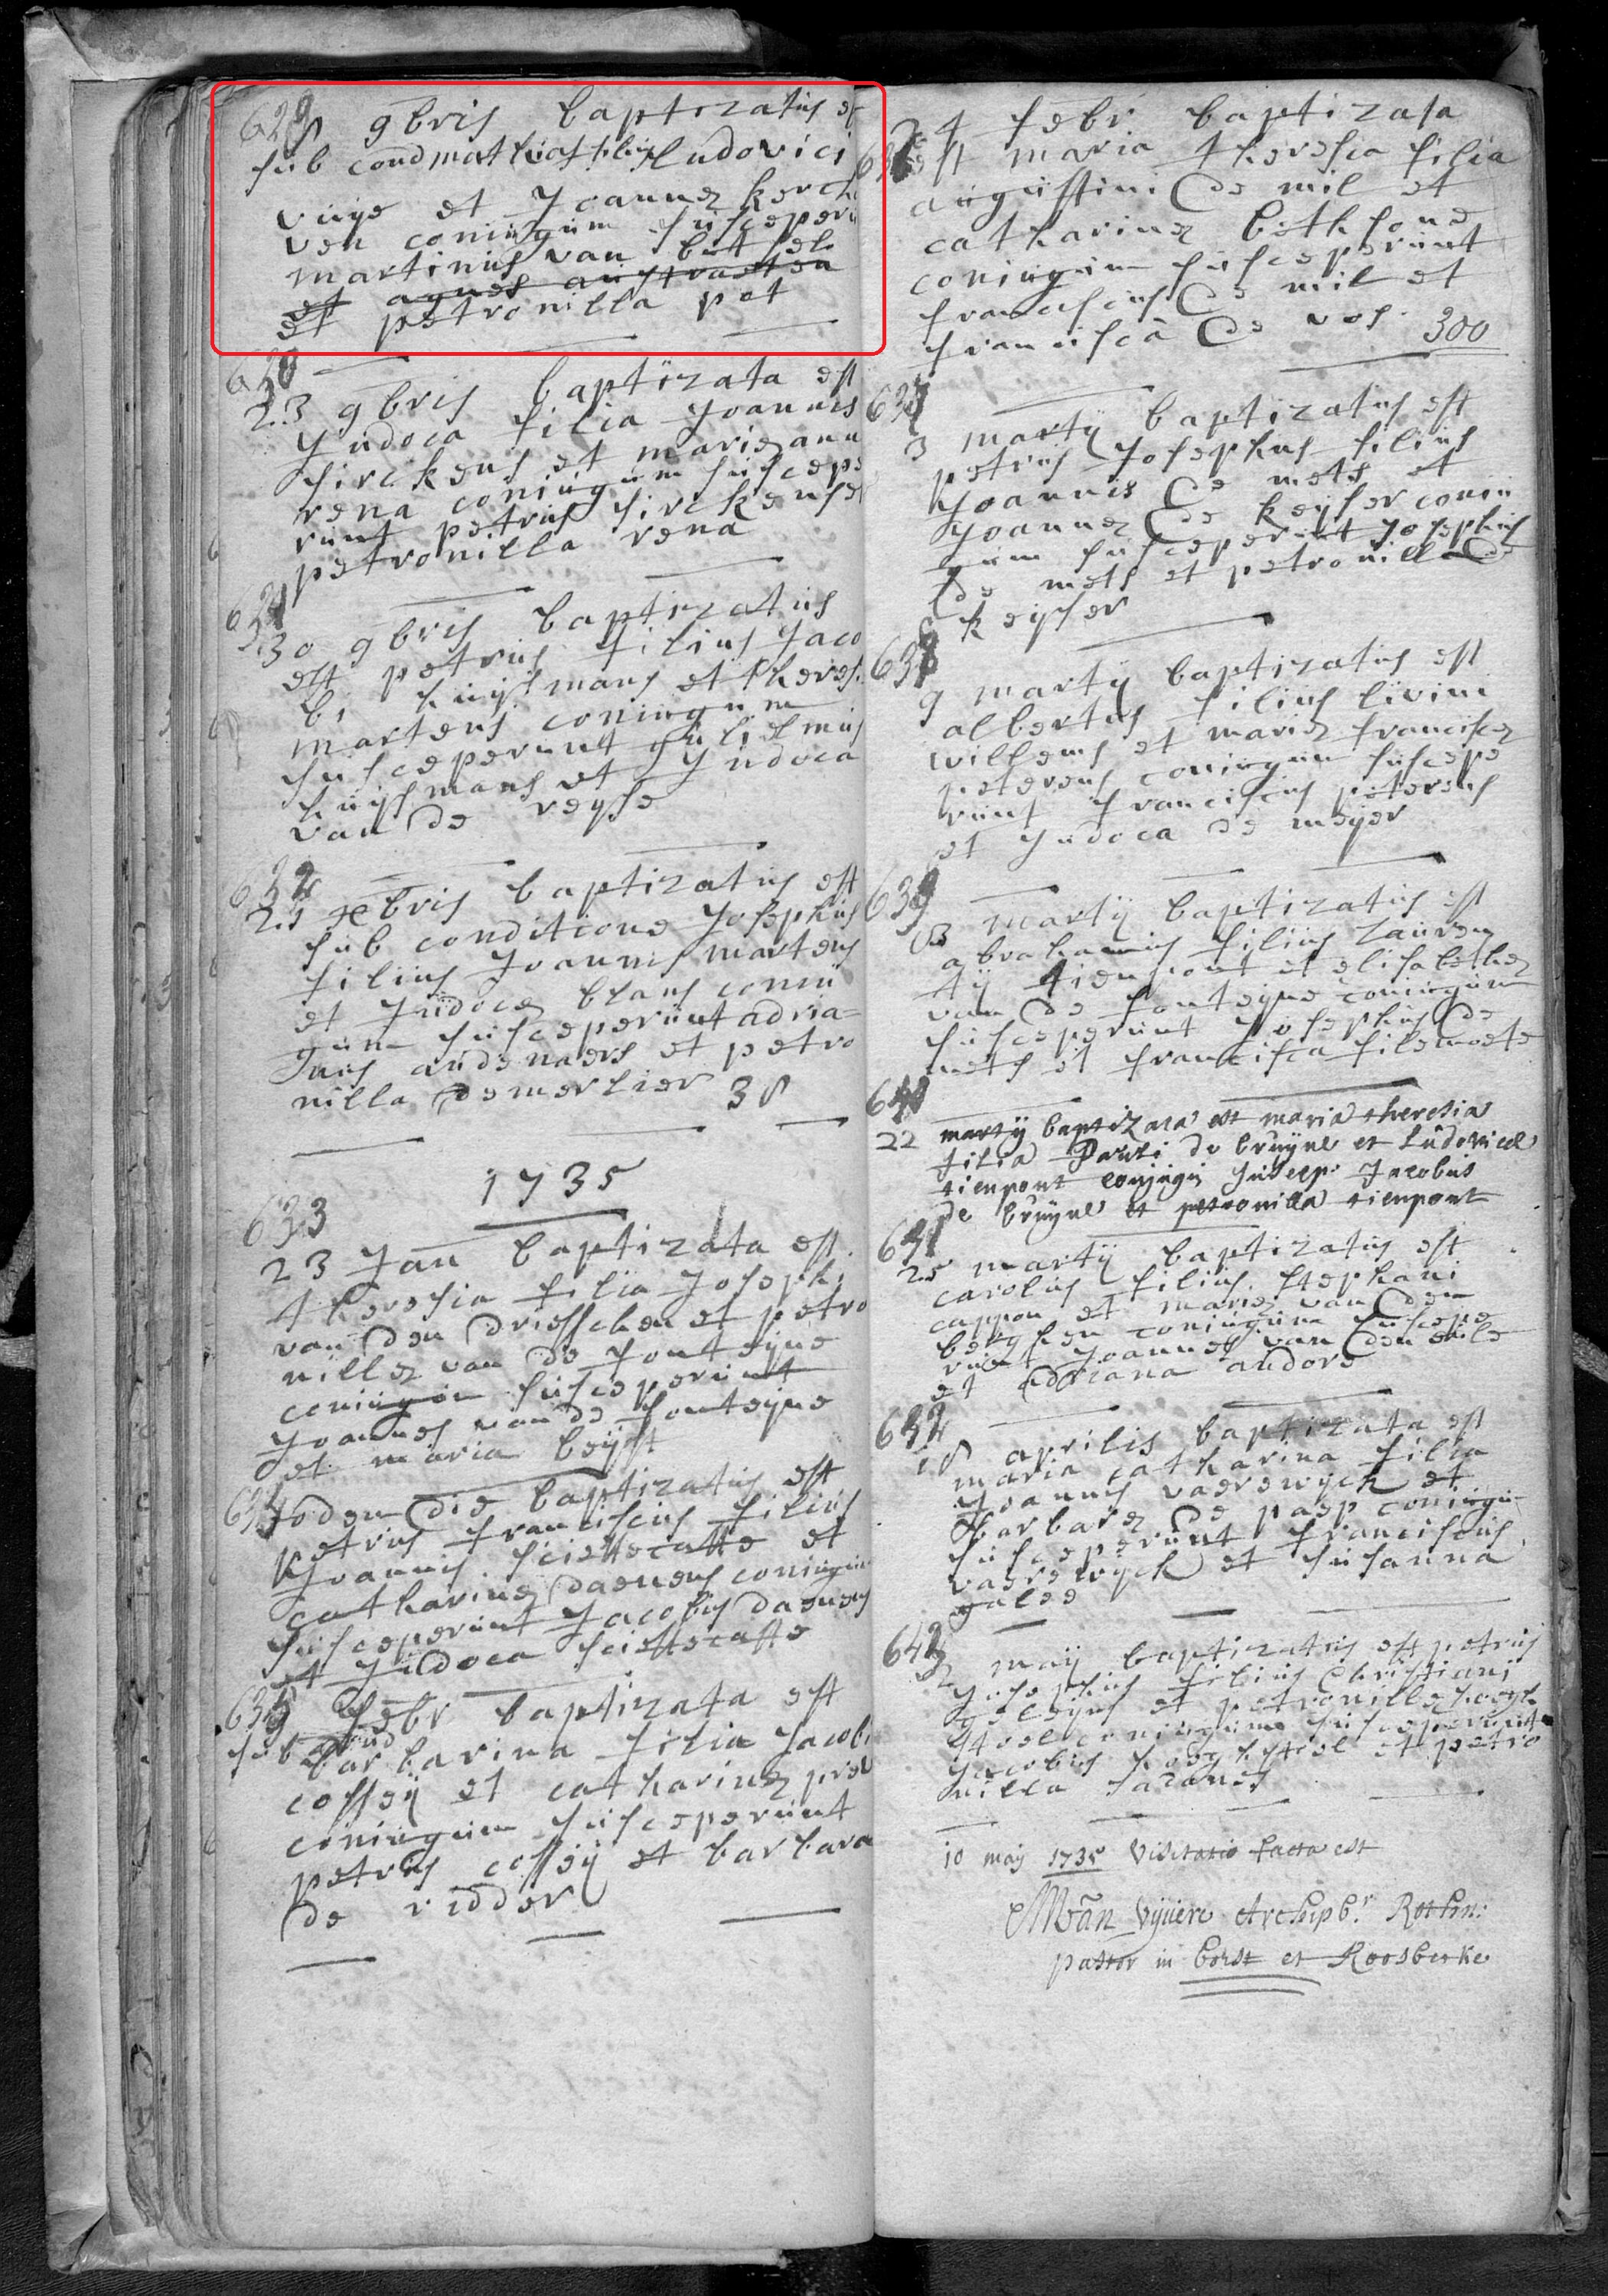 629
8 9bris baptizatus est
sub cond mathias filius Ludovici
vuije et Joannæ kerck
ven coniugum susceperū
martinus van butsel
et agnes
et petronilla pot
630
23 9bris baptizata est
Judoca filia Joannis
sirckens et mariæ ann
rena coniugum suscepe
runt petrus sirckens et
petronilla rena
631
30 9bris baptizatus
est petrus filius Jaco
bi huijsmans et theres.
martens coniugum
susceperunt gulielmus
huijsmans et Judoca
van de veyse
632
21 xbris baptizatus est
sub conditione Josephus
filius Joannis martens
et Judocæ blans coniu
gum susceperunt adria=
nus audenaers et petro
nilla demerlier 38
1735
633
23 Jan baptizata est
theresia filia Josephi
van den driesschen et petro
nillæ van de fonteijne
coniugum susceperunt
Joannes van de fonteijne
et maria beijst
634 Eodem die baptizatus est
petrus franciscus filius
Joannis sciettecatte et
catharinæ daenens coniugum
susceperunt Jacobus daenens
et Judoca sciettecatte
635 9 febr baptizata est
sub cond
barbarina filia Jacobi
cosseij et catharinæ prev
coniugum susceperunt
petrus cosseij et barbara
de ridder
636 4 febr baptizata
est maria theresia filia
augustini de mil et
catharinæ bothsone
coniugum susceperunt
franciscus de mil et
francisca de vos. 300
637
3 martij baptizatus est
petrus Josephus filius
Joannis de mets et
Joannæ de keyser coniu
gum susceperunt Josephus
de mets et petronilla de
keyser
638
9 martij baptizatus est
albertus filius livini
willems et mariæ franciscæ
peterens coniugum suscepe
runt franciscus peterens
et Judoca de meijer
639
13 martij baptizatus est
abrahamus filius lauren
tij tienpont et elisabethæ
van de fonteijne coniugum
susceperunt Josephus de
mets et francisca
640
22 martij baptizata est maria theresia
filia Pauli de bruijne et Ludovicæ
tienpont conjugū suscep. Jacobus
de bruijne et petronilla tienpont
641
25 martij baptizatus est
carolus filius stephani
cappon et mariæ van den
berghen coniugum suscepe
runt Joannes van den
et adriana audore
642
18 aprilis baptizata est
maria catharina filia
Joannis vaerewijck et
barbaræ de paep coniugū
susceperunt franciscus
vaerewijck et susanna
galee
643
2 maij baptizatus est petrus
Josephus filius Christiani
geleijns et petronillæ hoogh
steel coniugum susceperunt
Jacobus hooghsteel et petro
nilla
10 maij 1735 Visitatio facta est
Van Vijvere Archipb.r Rothn:
pastor in borst et Roosbeke